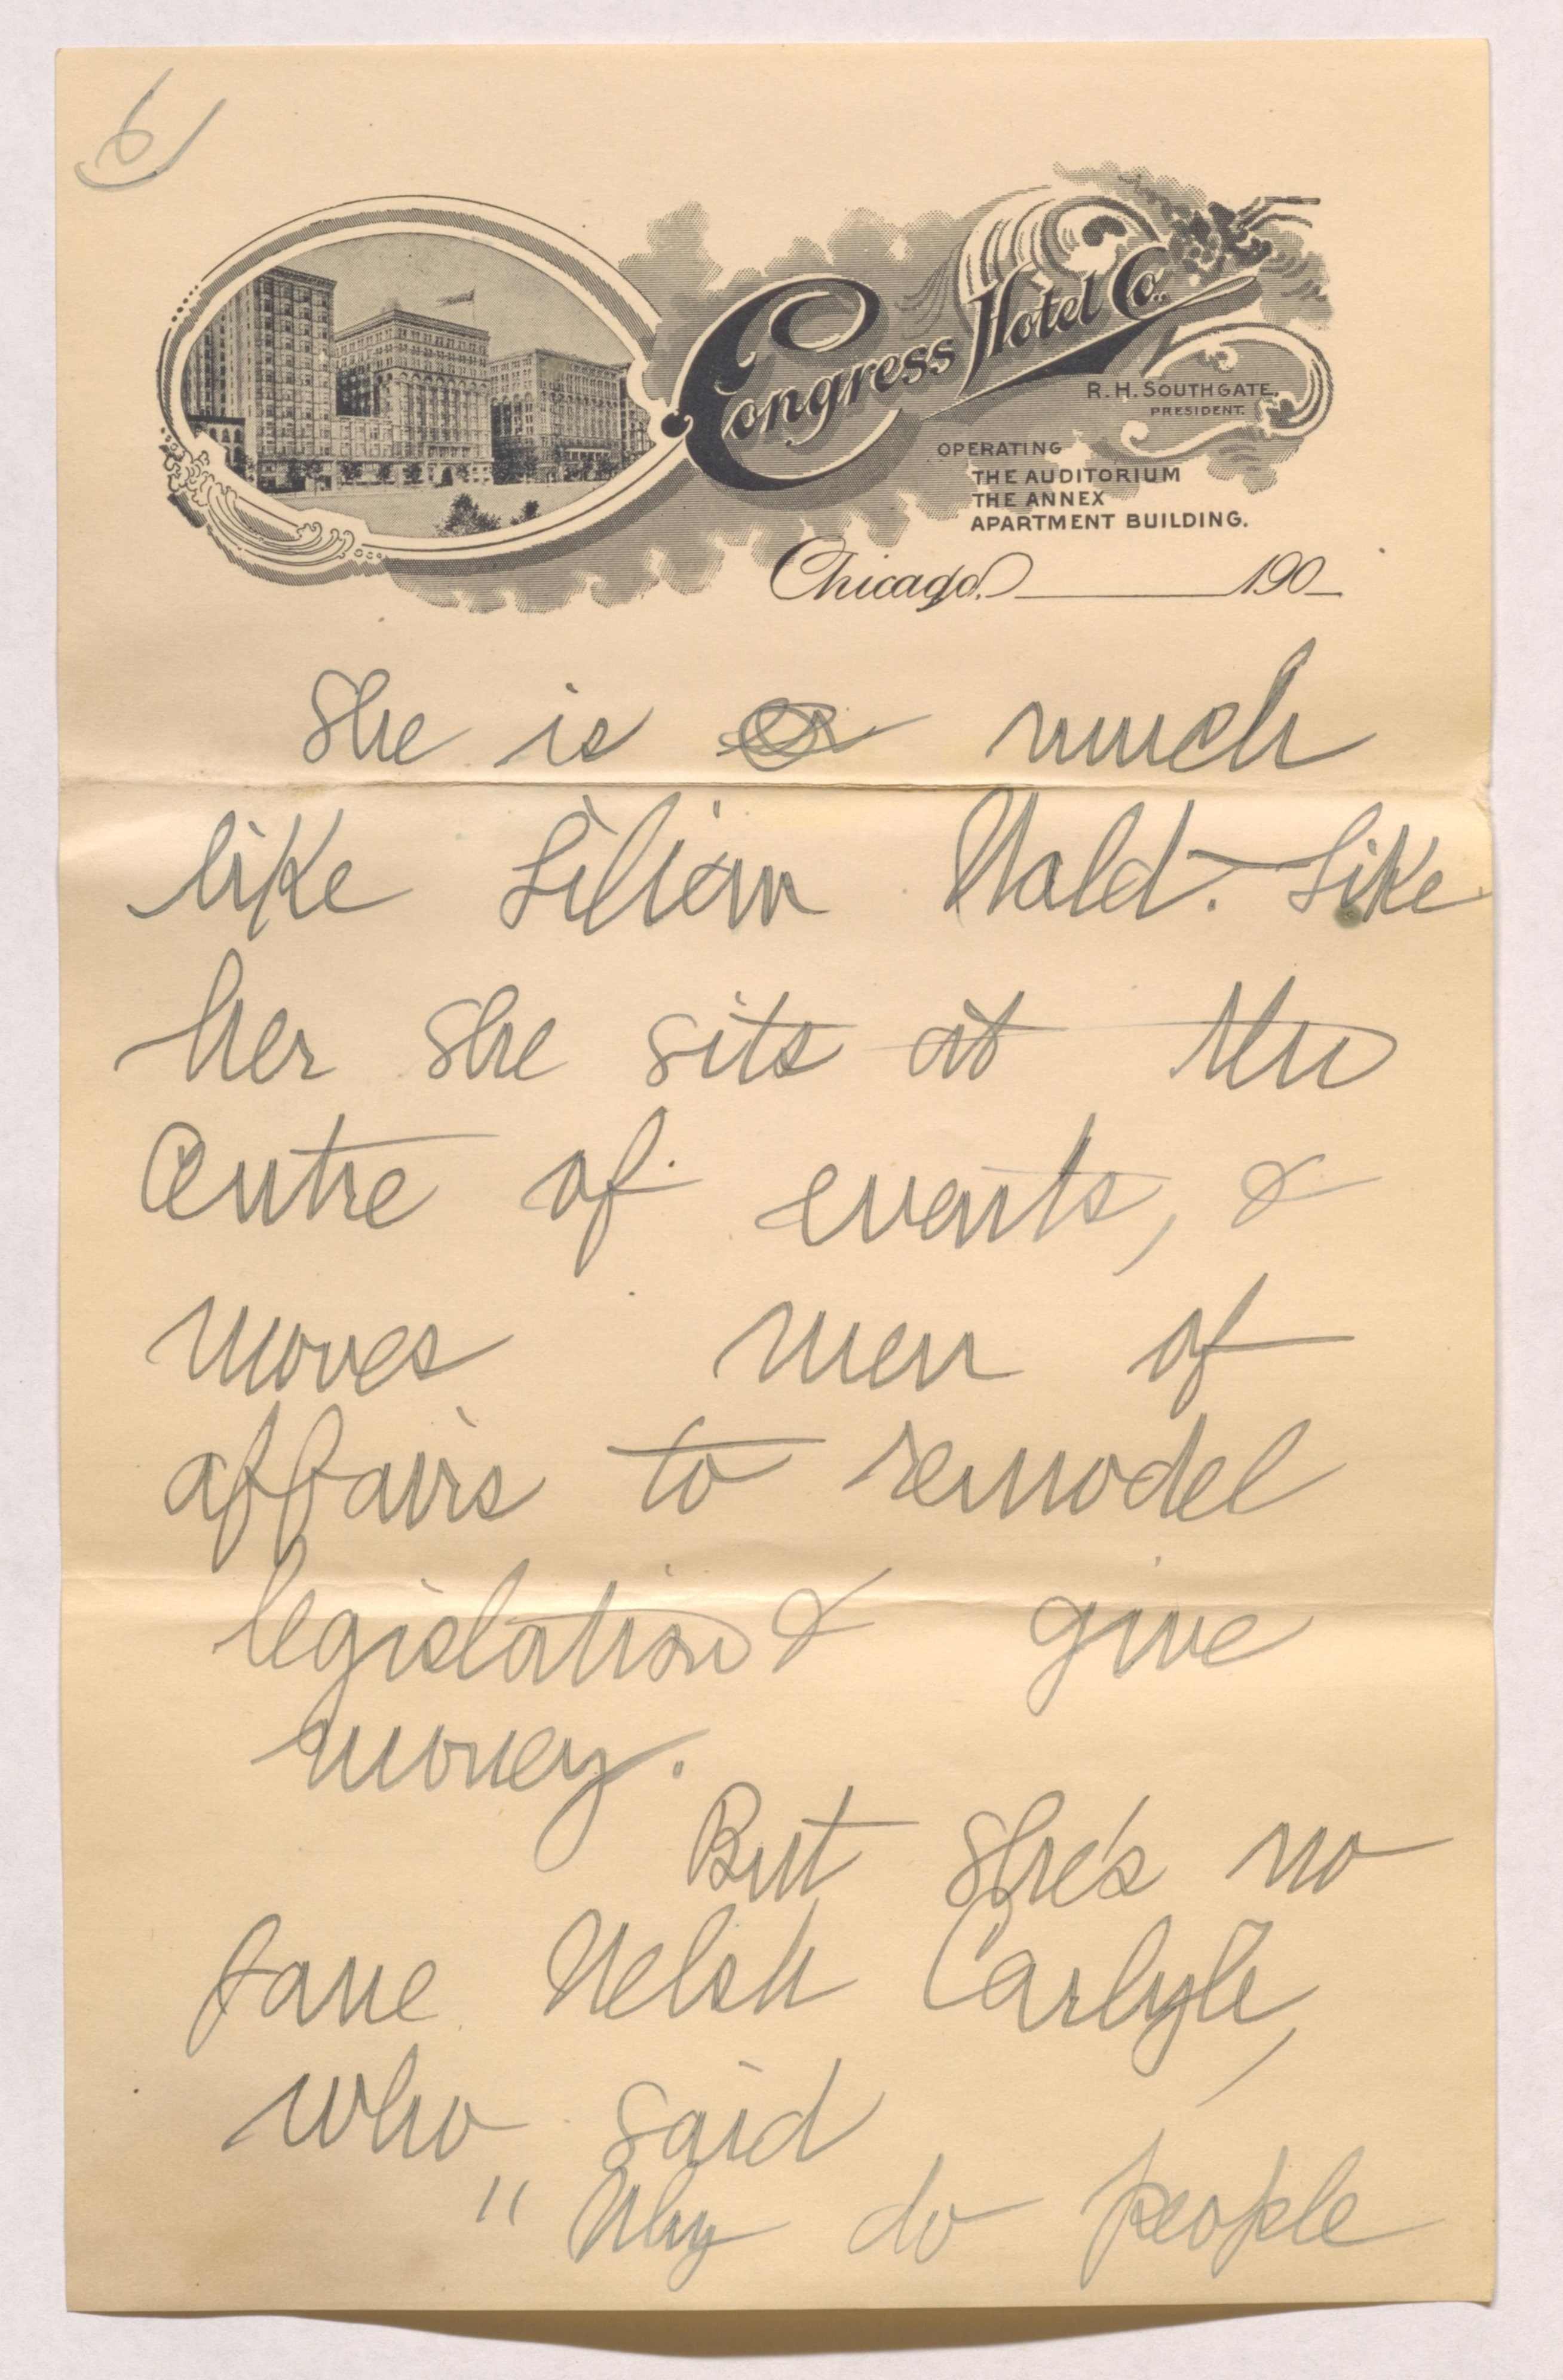 6
Congress Hotel Co.
R. H. SOUTHGATE,
PRESIDENT.
OPERATING
THE AUDITORIUM
THE ANNEX
APARTMENT BUILDING.
Chicago, 190
She is much
like Lilian Wald. Like
her she sits at the
Centre of events, &
moves men of
affairs to remodel
legislation & give
money.
But she's no
Jane Welsh Carlyle,
who said
" Why do people